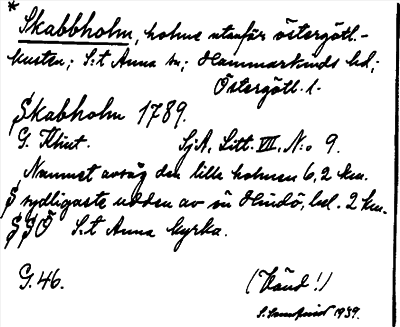 * Skabbholm, holme utanför östergötl.-
kusten; S:t Anna sn; Hammarkinds hd;
Östergötl. l.
Skabbholm 1789.
G. Klint. Sj.A. Litt. VII. N:o 9.
Namnet avsåg den lilla holmen 6,2 km.
S sydligaste udden av ön Hindö, bel. 2 km.
SSO S:t Anna kyrka.
G. 46. (Vänd!)
1939.